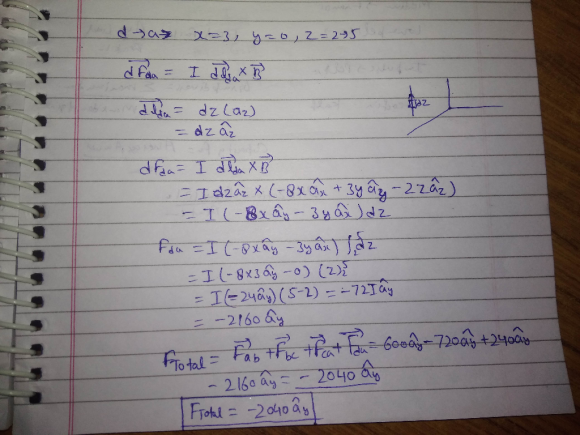 d → a → x = 3, y = 0, z = 2→5
dF⃗da = I dl⃗da × B⃗
dl⃗da = dz (az)
= dz âz
dz
dFda = I dl⃗da × B⃗
= I dz âz × (-8x âx + 3y ây - 2z âz)
= I (-8x ây - 3y âx) dz
Fda = I (-8x ây - 3y âx) ∫₂⁵ dz
= I (-8x3 ây - 0) (z)₂⁵
= I (-24 ây) (5-2) = -72I ây
= -2160 ây
FTotal = F⃗ab + F⃗bc + F⃗ca + F⃗da = 600ây - 720ây + 240ây
- 2160 ây = - 2040 ây
FTotal = -2040 ây